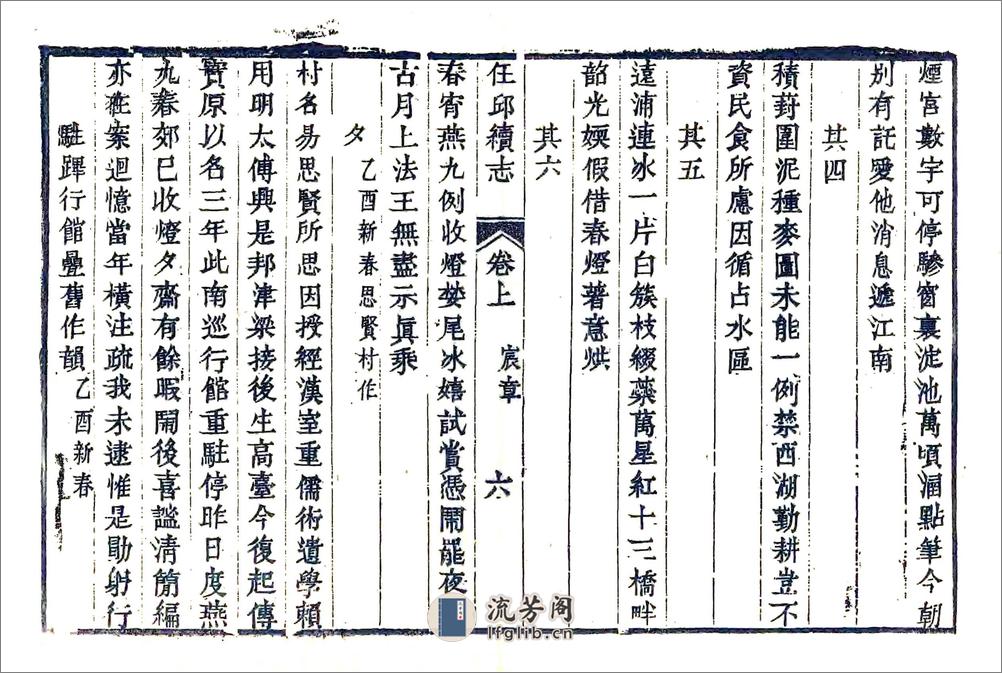 煙宮數字可停驂窗裏淀池萬頃涵點筆今朝
別有託愛他消息遞江南
其四
積葑圍泥種麥圖未能一例禁西湖勤耕豈不
資民食所慮因循占水區
其五
遠浦連冰一片白簇枝綴蘂萬星紅十三橋畔
韶光嫫假借春燈著意烘
其六
任邱續志 卷上 宸章 六
春宵燕九例收燈婪尾冰嬉試賞憑鬧罷夜
古月上法王無盡示眞乘
夕乙酉新春思賢村作
村名易思賢所思因授經漢室重儒術遺學賴
用明太傅興是邦津梁接後生高臺今復起傳
實原以名三年此南巡行館重駐停昨日度燕
九春郊已收燈夕齋有餘暇鬧後喜謐淸簡編
亦在案迴憶當年橫注疏我未逮惟是勖躬行
駐蹕行館疊舊作韻乙酉新春
流芳阁
lfglib.cn